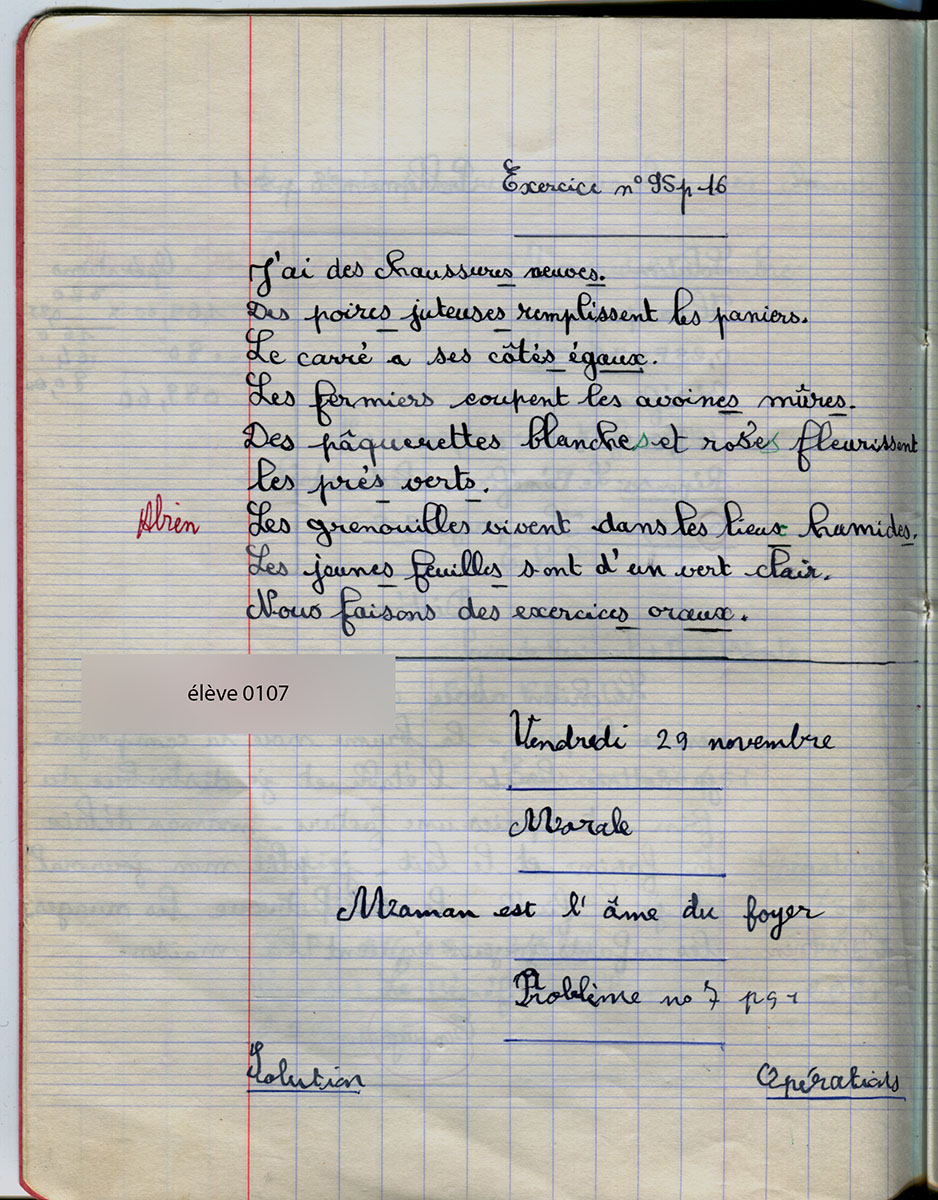 Exercice n° 95 p 16
J'ai des chaussures neuves.
Des poires juteuses remplissent les paniers.
Le carré a ses côtés égaux.
Les fermiers coupent les avoines mûres.
Des pâquerettes blanches et roses fleurissent
les prés verts.
ABien Les grenouilles vivent dans les lieux humides.
Les jeunes feuilles sont d'un vert clair.
Nous faisons des exercices oraux.
élève 0107
Vendredi 29 novembre
Morale
Maman est l'âme du foyer
Problème no 7 p 91
Solution Opérations